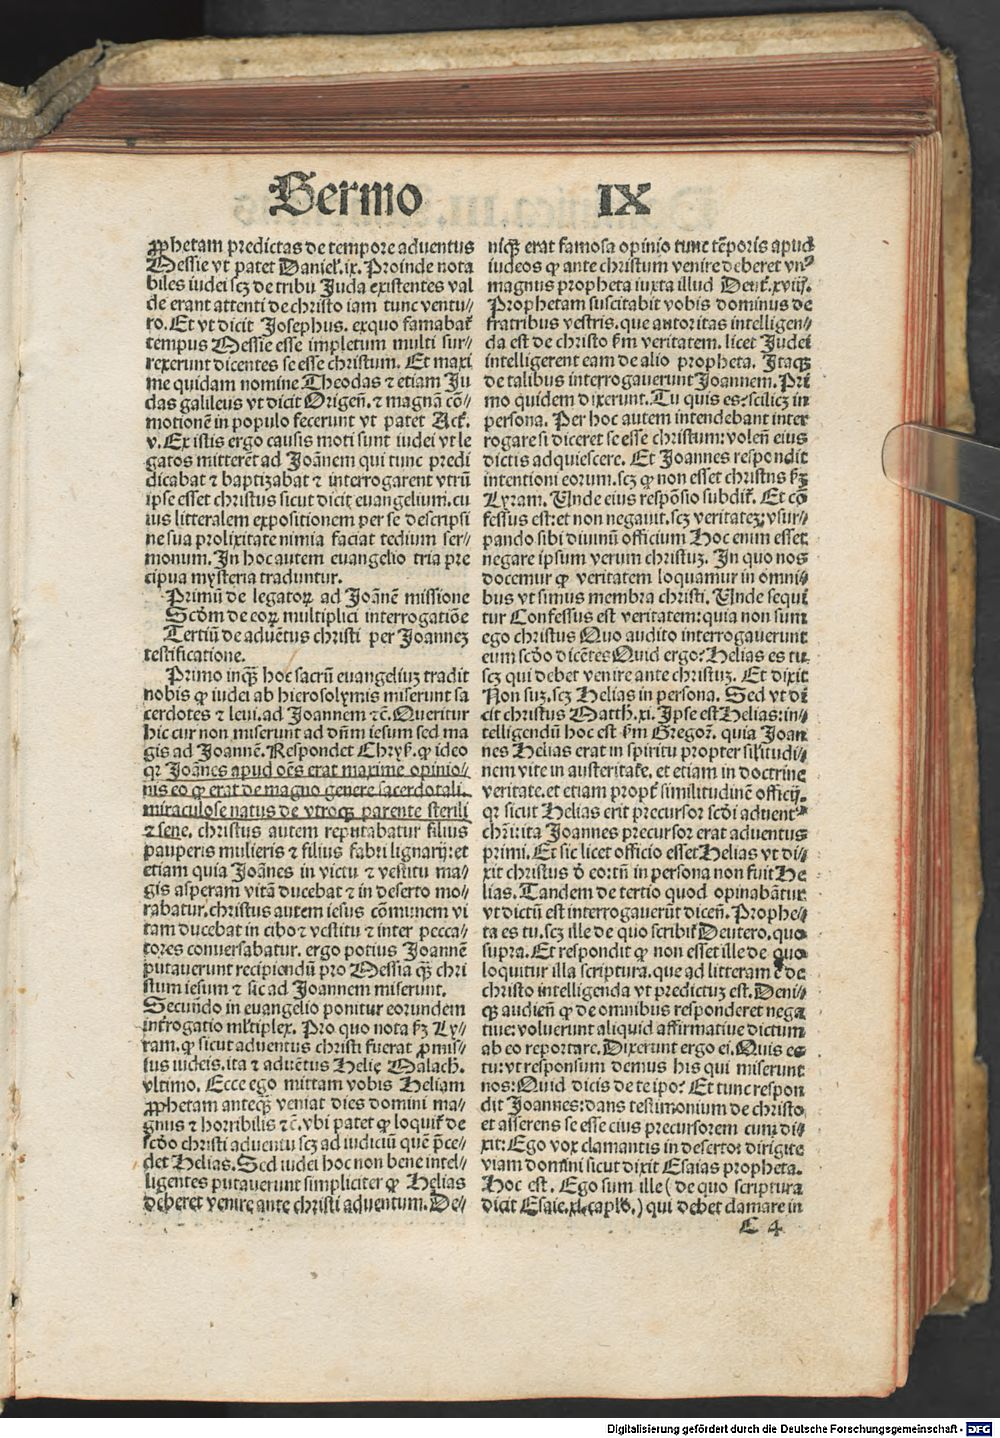 Sermo IX
ꝓphetam predictas de tempore aduentus
Messie vt patet Daniel̕. ix. Proinde nota
biles iudei scꝫ de tribu Juda existentes val
de erant attenti de christo iam tunc ventu⸗
ro. Et vt dicit Josephus. exquo famabat̕
tempus Messie esse impletum multi sur⸗
rexerunt dicentes se esse christum. Et maxi
me quidam nomine Theodas ⁊ etiam Ju
das galileus vt dicit Origen̄. ⁊ magnā cō⸗
motionē in populo fecerunt vt patet Act̕.
v. Ex istis ergo causis moti sunt iudei vt le
gatos mitterēt ad Joānem qui tunc predi
dicabat ⁊ baptizabat ⁊ interrogarent vtrū
ipse esset christus sicut dicit euangelium. cu
ius litteralem expositionem per se descripsi
ne sua prolixitate nimia faciat tedium ser⸗
monum. In hoc autem euangelio tria pre
cipua mysteria traduntur.
Primū de legatoꝝ ad Joānē missione
Scd̄m de eoꝝ multiplici interrogatiōe
Tertiū de aduētus christi per Joannez
testificatione.
Primo inqꝫ hoc sacrū euangeliuz tradit
nobis ꝙ iudei ab hierosolymis miserunt sa
cerdotes ⁊ leui. ad Joannem ⁊c̄. Queritur
hic cur non miserunt ad dn̄m iesum sed ma
gis ad Joannē. Respondet Chrys̕. ꝙ ideo
qꝛ Joānes apud oēs erat maxime opinio⸗
nis eo ꝙ erat de magno genere sacerdotali.
miraculose natus de vtroqꝫ parente sterili
⁊ sene. christus autem reputabatur filius
pauperis mulieris ⁊ filius fabri lignarij: et
etiam quia Joānes in victu ⁊ vestitu ma⸗
gis asperam vitā ducebat ⁊ in deserto mo⸗
rabatur. christus autem iesus cōmunem vi
tam ducebat in cibo ⁊ vestitu ⁊ inter pecca⸗
tores conuersabatur. ergo potius Joannē
putauerunt recipiendū pro Messia qꝫ chri
stum iesum ⁊ sic ad Joannem miserunt.
Secundo in euangelio ponitur eorundem
int̕rogatio ml̕tiplex. Pro quo nota ẜꝫ Ly⸗
ram. ꝙ sicut aduentus christi fuerat ꝓmis⸗
sus iudeis. ita ⁊ aduētus Helię Malach.
vltimo. Ecce ego mittam vobis Heliam
ꝓphetam anteqꝫ veniat dies domini ma⸗
gnus ⁊ horribilis ⁊c̄. vbi patet ꝙ loquit̕ de
scd̄o christi aduentu scꝫ ad iudiciū quē p̄ce⸗
det Helias. Sed iudei hoc non bene intel⸗
ligentes putauerunt simpliciter ꝙ Helias
deberet venire ante christi aduentum. De⸗
niqꝫ erat famosa opinio tunc tēporis apud
iudeos ꝙ ante christum venire deberet vnꝰ
magnus propheta iuxta illud Deut̕. xviij.
Prophetam suscitabit vobis dominus de
fratribus vestris. que autoritas intelligen⸗
da est de christo ẜm veritatem. licet Judei
intelligerent eam de alio propheta. Itaqꝫ
de talibus interrogauerunt Joannem. Pri
mo quidem dixerunt. Tu quis es: scilicꝫ in
persona. Per hoc autem intendebant inter
rogare si diceret se esse christum: volen̄ eius
dictis adquiescere. Et Joannes respondit
intentioni eorum. scꝫ ꝙ non esset christus ẜꝫ
Lyram. Unde eius respōsio subdit̕. Et cō
fessus est: et non negauit. scꝫ veritatez: vsur⸗
pando sibi diuinū officium Hoc enim esset
negare ipsum verum christuꝫ. In quo nos
docemur ꝙ veritatem loquamur in omni⸗
bus vt simus membra christi. Unde sequi
tur Confessus est veritatem: quia non sum
ego christus Quo audito interrogauerunt
eum scd̄o dicētes Quid ergo? Helias es tu.
scꝫ qui debet venire ante christuꝫ. Et dixit
Non suꝫ. scꝫ Helias in persona. Sed vt di
cit christus Matth. xi. Ipse est Helias: in⸗
telligendū hoc est ẜm Gregoꝝ. quia Joan
nes Helias erat in spiritu propter sil̕itudi⸗
nem vite in austeritate. et etiam in doctrine
veritate. et etiam propt̕ similitudinē officij.
qꝛ sicut Helias erit precursor scd̄i aduentꝰ
chr̄i: ita Joannes precursor erat aduentus
primi. Et sic licet officio esset Helias vt di⸗
xit christus d̄ eo: tn̄ in persona non fuit He
lias. Tandem de tertio quod opinabātur
vt dictū est interrogauerūt dicen̄. Prophe⸗
ta es tu. scꝫ ille de quo scribit̕ Deutero. quo
supra. Et respondit ꝙ non esset ille de quo
loquitur illa scriptura. que ad litteram ē de
christo intelligenda vt predictuꝫ est. Deni⸗
qꝫ audien̄ ꝙ de omnibus responderet nega
tiue: voluerunt aliquid affirmatiue dictum
ab eo reportare. Dixerunt ergo ei. Quis es
tu: vt responsum demus his qui miserunt
nos: Quid dicis de te ipo? Et tunc respon
dit Joannes: dans testimonium de christo
et asserens se esse eius precursorem cum di⸗
xit: Ego vox clamantis in deserto: dirigite
viam domini sicut dixit Esaias propheta.
Hoc est. Ego sum ille (de quo scriptura
dicit Esaie. xl. capl̕o.) qui debet clamare in
C 4
Digitalisierung gefördert durch die Deutsche Forschungsgemeinschaft - DFG